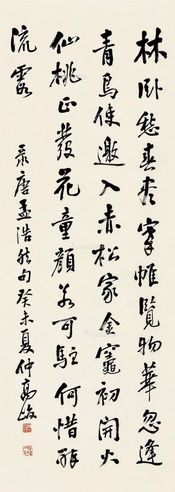 林卧愁春尽搴帷覽物華忽逢
青鳥使邀入赤松家金竈初開火
仙桃正發花童顏若可駐何惜醉
流霞
录唐孟浩然句癸未夏仲高